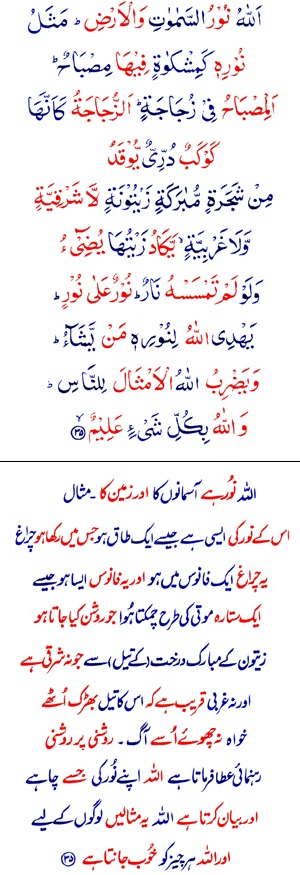 اَللّٰهُ نُوْرُ السَّمٰوٰتِ وَالْاَرْضِ ؕ مَثَلُ
نُوْرِهٖ كَمِشْكٰوةٍ فِيْهَا مِصْبَاحٌ ؕ
اَلْمِصْبَاحُ فِىْ زُجَاجَةٍ ؕ اَلزُّجَاجَةُ كَاَنَّهَا
كَوْكَبٌ دُرِّىٌّ يُّوْقَدُ
مِنْ شَجَرَةٍ مُّبٰرَكَةٍ زَيْتُوْنَةٍ لَّا شَرْقِيَّةٍ
وَّلَا غَرْبِيَّةٍ ۙ يَّكَادُ زَيْتُهَا يُضِىْٓءُ
وَلَوْ لَمْ تَمْسَسْهُ نَارٌ ؕ نُوْرٌ عَلٰى نُوْرٍ ؕ
يَهْدِى اللّٰهُ لِنُوْرِهٖ مَنْ يَّشَآءُ ؕ
وَيَضْرِبُ اللّٰهُ الْاَمْثَالَ لِلنَّاسِ ؕ
وَاللّٰهُ بِكُلِّ شَىْءٍ عَلِيْمٌ ۙ ﴿۳۵﴾
اللہ نُور ہے آسمانوں کا اور زمین کا ۔ مثال
اس کے نور کی ایسی ہے جیسے ایک طاق ہو جس میں رکھا ہو چراغ
یہ چراغ ایک فانوس میں ہو اور یہ فانوس ایسا ہو جیسے
ایک ستارہ موتی کی طرح چمکتا ہُوا جو روشن کیا جاتا ہو
زیتون کے مبارک درخت (کے تیل) سے جو نہ شرقی ہے
اور نہ غربی قریب ہے کہ اس کا تیل بھڑک اُٹھے
خواہ نہ چھوئے اُسے آگ ۔ روشنی پر روشنی
رہنمائی عطا فرماتا ہے اللہ اپنے نُور کی جسے چاہے
اور بیان کرتا ہے اللہ یہ مثالیں لوگوں کے لیے
اور اللہ ہر چیز کو خُوب جانتا ہے ﴿۳۵﴾